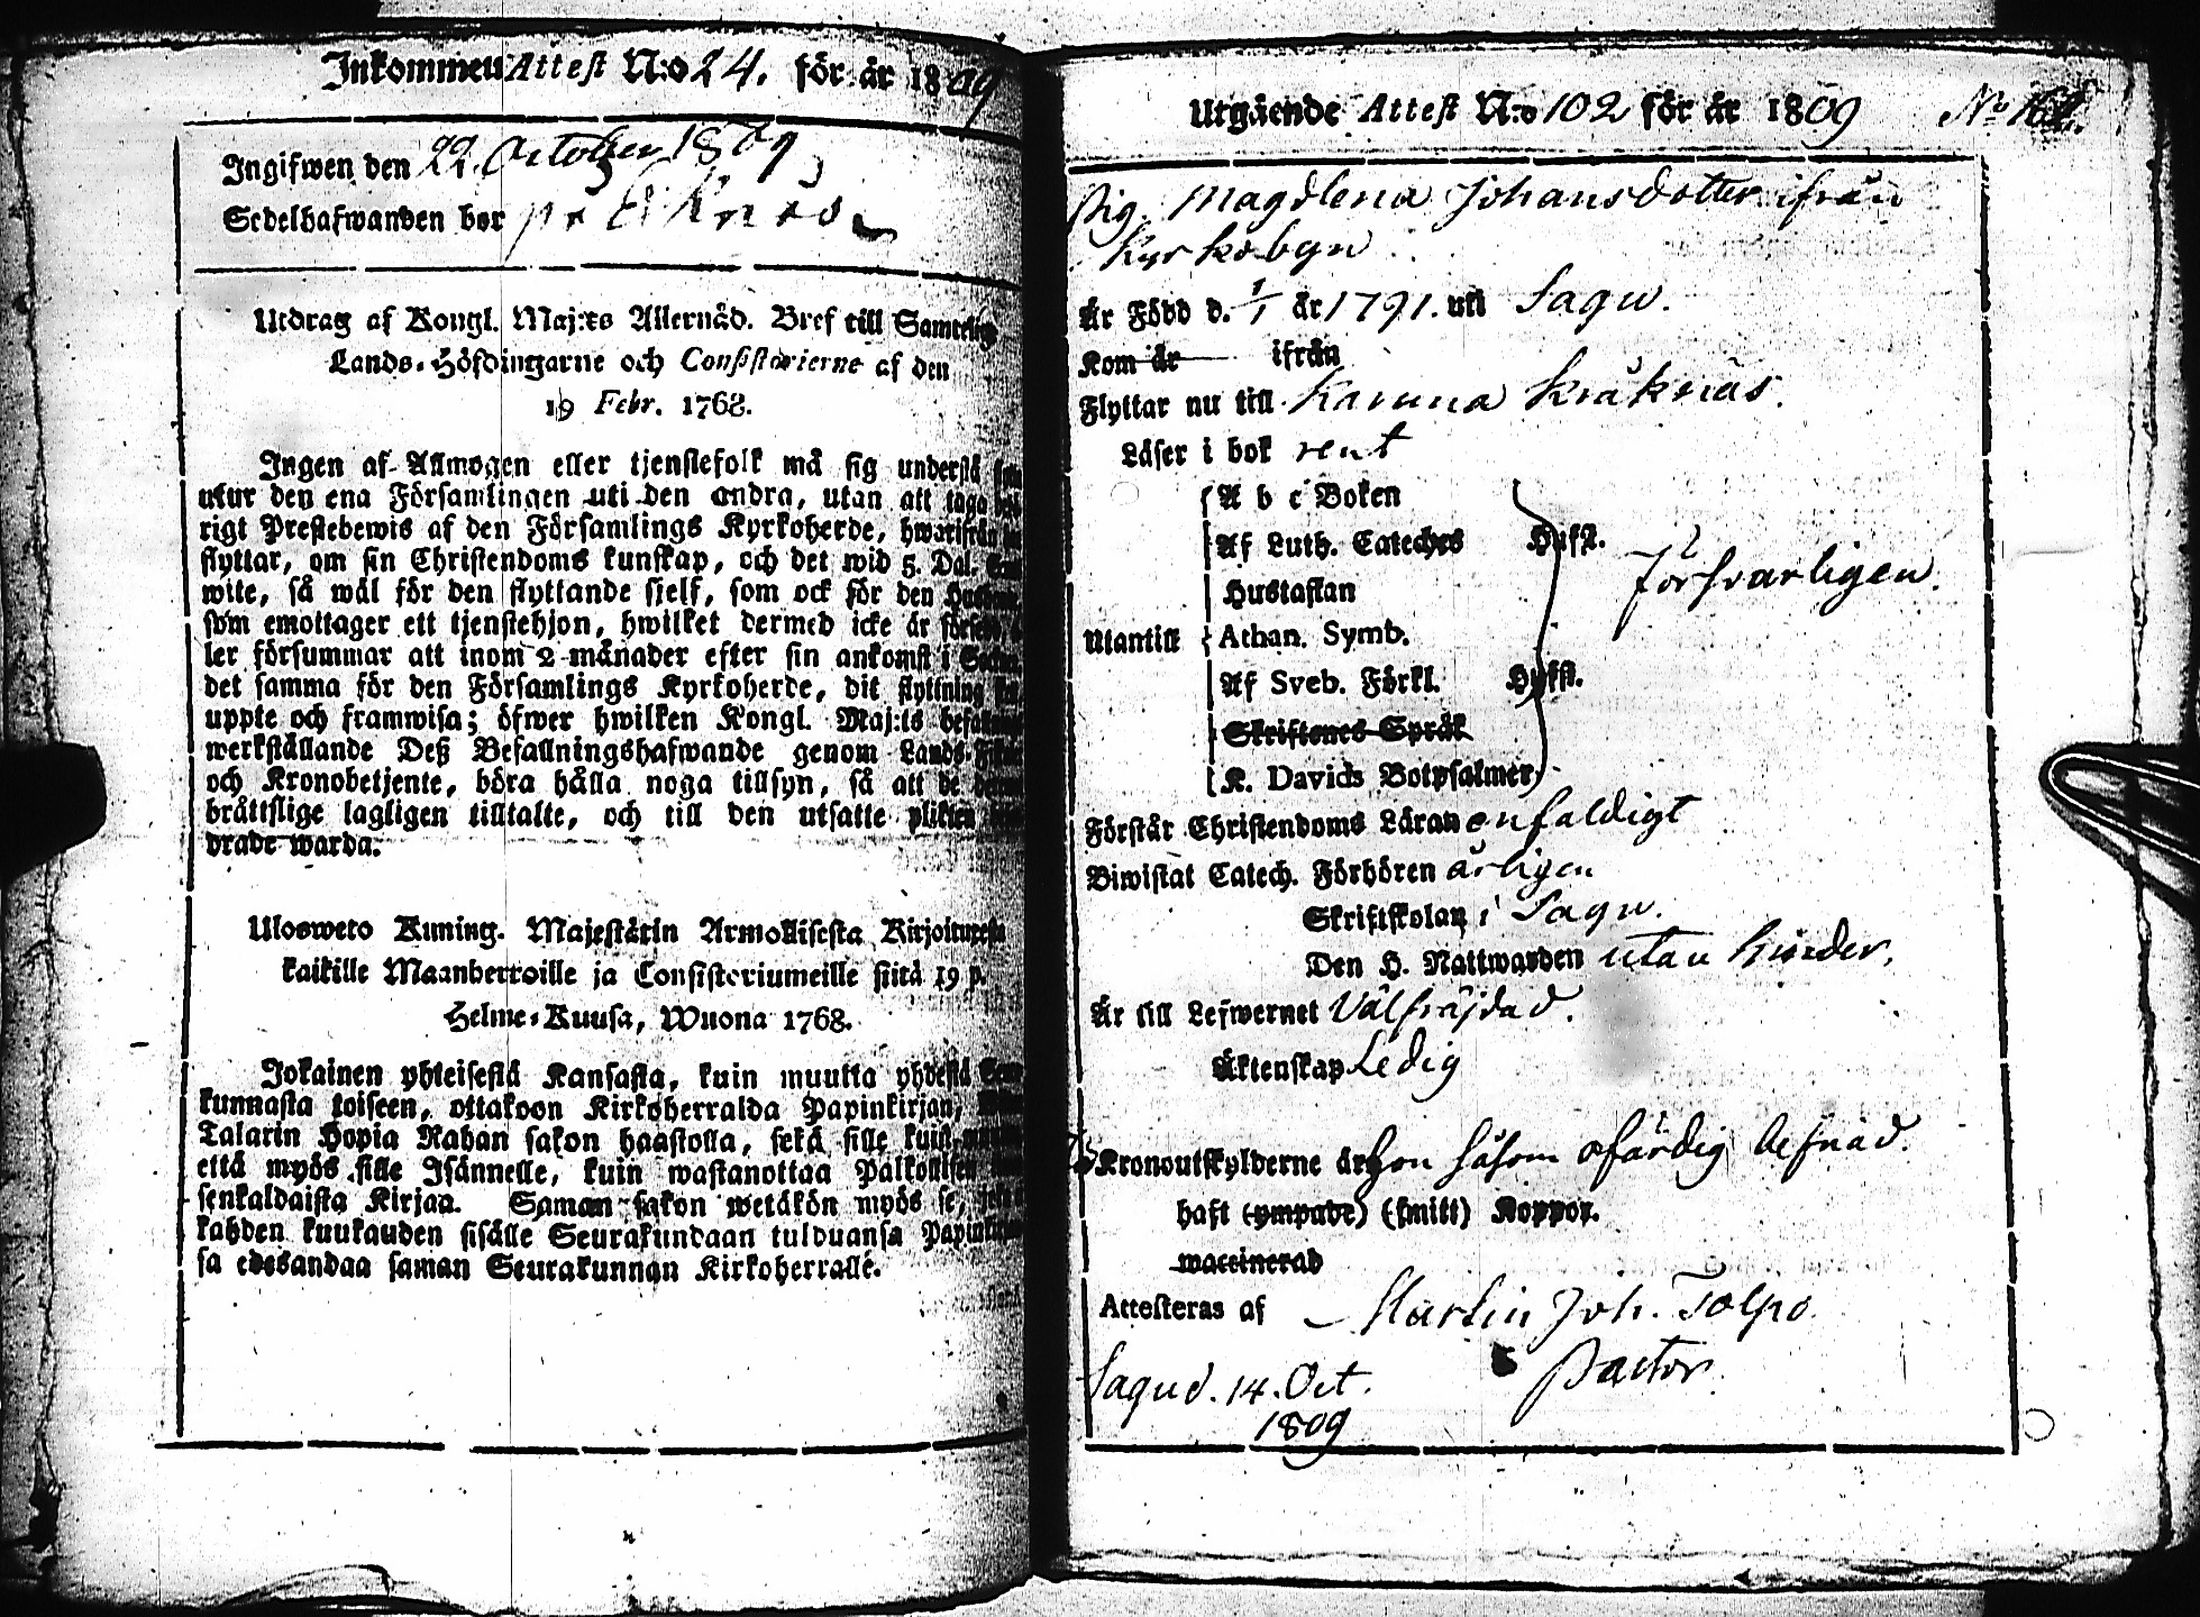 Inkommen Attest N:o 24. för år 1809
Ingifwen den 22. October 1809
Sedelhafwanden bor på
Utdrag af Kongl. Maj:ts Allernåd. Bref till Samtelige
Lands-Höfdingarne och Consistorierne af den
19 Febr. 1768.
Ingen af Allmogen eller tjenstefolk må sig understå
utur den ena Församlingen uti den andra, utan att taga
rigt Prestebewis af den Församlings Kyrkoherde, hwarifrån
flyttar, om sin Christendoms kunskap, och det wid 5. Dal.
wite, så wäl för den flyttande sjelf, som ock för den
som emottager ett tjenstehjon, hwilket dermed icke är
ler försummar att inom 2 månader efter sin ankomst i
det samma för den Församlings Kyrkoherde, dit flyttning
uppte och framwisa; öfwer hwilken Kongl. Maj:ts
werkställande Deß Befallningshafwande genom Lands-
och Kronobetjente, böra hålla noga tillsyn, så att de
bråttslige lagligen tilltalte, och till den utsatte plikten
drade warda.
Ulosweto Kuning. Majestätin Armollisesta Kirjoituresta
kaikille Maanherroille ja Consistoriumeille siitä 19 p.
Helme-Kuusa, Wuona 1768.
Jokainen yhteisestä Kansasta, kuin muutta yhdestä
kunnasta toiseen, ottakoon Kirkoherralda Papinkirjan,
Talarin Hopia Rahan sakon haastolla, sekä sille kuin
että myös sille Isännelle, kuin wastanottaa Palkollisen
senkaldaista Kirjaa. Saman sakon wetäkön myös se,
kahden kuukauden sisälle Seurakundaan tulduansa
sa edesandaa saman Seurakunnan Kirkoherralle.
Utgående Attest N:o 102 för år 1809 No
Pig. Magdlena Johansdotter ifrån
Kyrkobyn
Är Född d. 1/1 år 1791. uti Sagu.
Kom år ifrån
Flyttar nu till Karuna Kråknäs.
Läser i bok rent
A b c Boken
Af Luth. Cateches Hufst.
Hustaflan
försvarligen.
Utantill Athan. Symb.
Af Sveb. Förkl. Hufst.
Skriftenes Språk
K. Davids Botpsalmer
Förstår Christendoms Läran enfaldigt
Biwistat Catech. Förhören årligen
Skriftskolan i Sagu.
Den H. Nattwarden utan hinder.
Är till Lefwernet Välfräjdad.
Äktenskap Ledig
Kronoutskylderne är hon såsom ofärdig befriad.
haft (ympade) (smitt) Koppor.
waccinerad
Attesteras af Martin Joh. Tolpo
Pastor.
Sagu d. 14. Oct.
1809